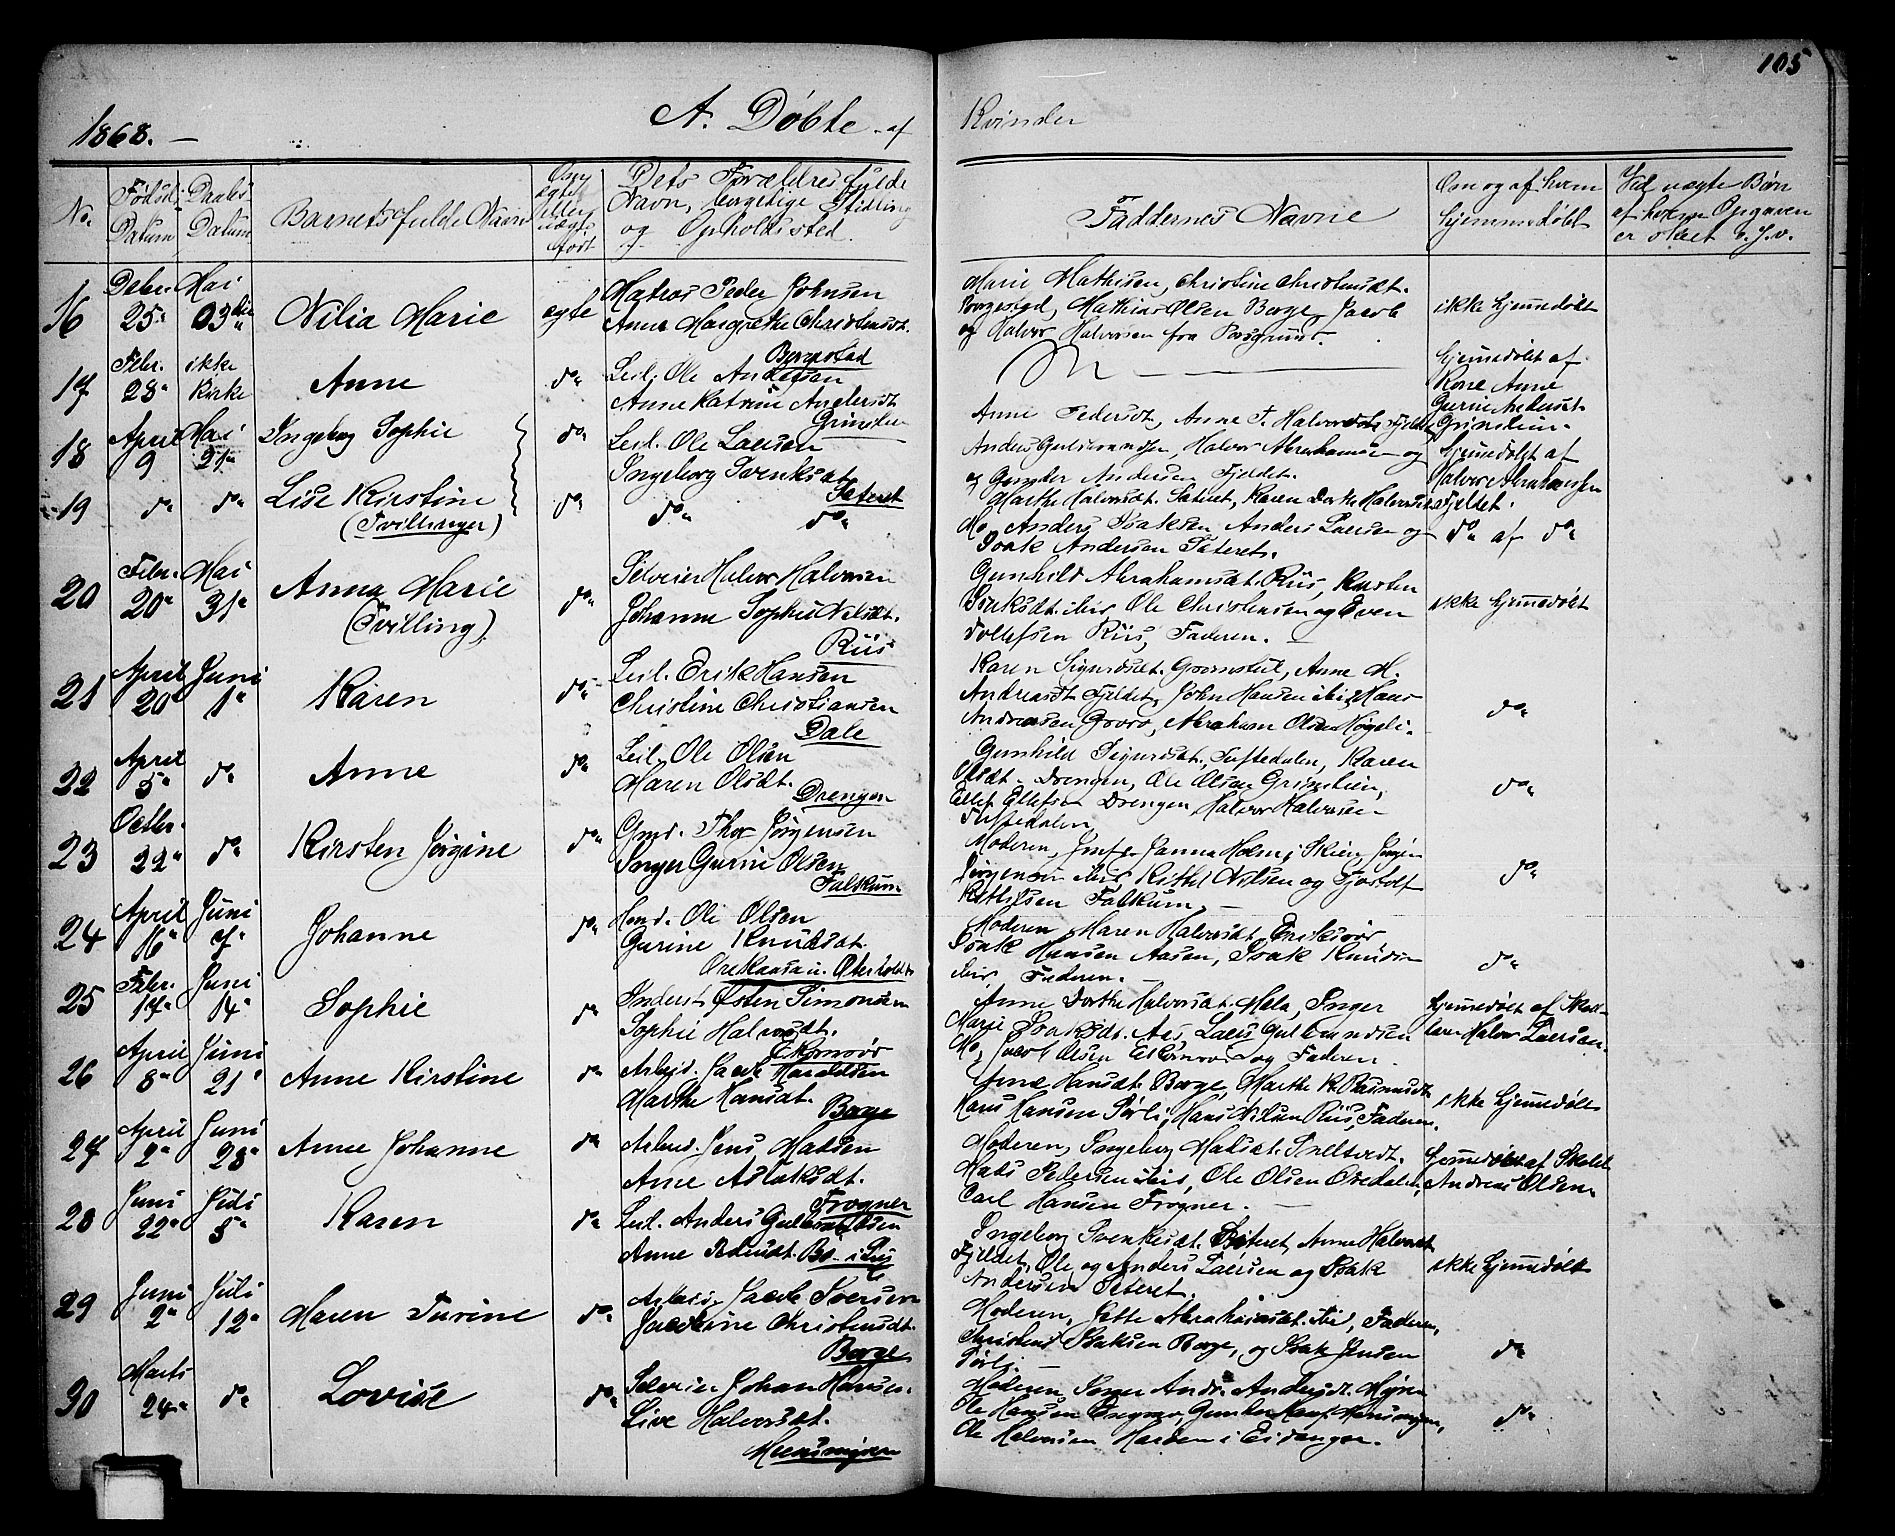 105
1868. — A. Døbte af Kvinder
No. Fødsels Datum Daabs Datum Barnets fulde Navn Om ægte eller uægte født Dets Forældres fulde Navn, borgerlige Stilling og Opholdssted. Faddernes Navne Om og af hvem hjemmedøbt Ved uægte Børn af hvem Opgaven er skeet o.s.v.
16 25 Mai Nilia Marie ægte Matros Peder Johnsen
Anne Margrethe Christensdt. Borgestad
Marie Mathisen, Christine Christensdt.
Borgestad, Mathias Olsen Borge, Jacob
og Halvor Halvorsen fra Porsgrund. ikke hjemmedøbt
17 Febr. 28 ikke Kirke Anne do Leil. Ole Andersen
Anne Katrine Andersdt. Grinilien
hjemmedøbt af
Kone Anne
Gurine Pedersdt.
Grinilien
18 April 9 Mai 21 Ingeborg Sophie do Leil. Ole Laersen
Ingeborg Svenkesdt. Sæteret
Anne Pedersdt, Anne P. Halvorsdt. Fjeldet
Anders Gulbrandsen, Halvor Abrahamsen og
og Gunder Andersen Fjeldet. hjemmedøbt af
Halvor Abrahamsen
Fjeldet.
19 do do Lise Kirstine do do do
(Tvillinger)
Marthe Halvorsdt. Sæteret, Karen Dorthe Halvorsdt.
Mo, Anders Isaksen, Anders Laersen og
Isak Andersen Sæteret. do af do
20 Febr. 20 Mai 31 Anna Marie do Selveier Halvor Halvorsen
(Tvilling) Johanne Sophie Nilsdt. Riis
Gunhild Abrahamsdt. Riis, Kirsten
Isaksdt. ibid, Ole Christensen og Even
Tollefsen Riis, Faderen. ikke hjemmedøbt
21 April 20 Juni 1 Karen do Leil. Erik Hansen
Christine Christiansen Dale
Karen Sigurdsdt. Grornstul, Anne M.
Andreasdt. Fjeldet, John Hansen ibid, Hans
Andreasen Grorø, Abraham Olsen Nøgeli. do
22 April 5 do Anne do Leil. Ole Olsen
Maren Olsdt. Drengen
Gunhild Sigurdsdt. Tuftedalen, Karen
Olsdt. Drengen, Ole Olsen Grinilien,
Ellef Ellefsen Drengen, Halvor Halvorsen
Tuftedalen do
23 Octbr. 22 do Kirsten Jørgine do Gmd. Thor Jørgensen
Inger Gurine Olsen Falkum
Moderen, Jmf. Janna Holm i Skien, Jørgen
Jørgensen ibid, Kittil Nilsen og Gjostolf
Kittilsen Falkum. do
24 April 16 Juni 7 Johanne do Hmd. Ole Olsen
Gurine Knudsdt.
Moderen, Maren Halvorsdt. Eriksrød
Isak Hansen Aasen, Isak Knudsen
ibid, Faderen. do
25 Febr. 17 Juni 14 Sophie do Inderst Østen Simonsen
Sophie Halvorsdt. Ekornrød
Anne Dorthe Halvorsdt. Mela, Inger
Marie Isaksdt. Aas, Laers Gulbrandsen
Mo, Jacob Olsen Ekornrød og Faderen. hjemmedøbt af Skol-
lærer Halvor Laersen.
26 April 8 Juni 21 Anne Kirstine do Arbejd. Jacob Haraldsen
Marthe Hansdt. Borge
Anne Hansdt. Borge, Marthe K. Rasmusdt.
Hans Hansen Sørli, Hans Nilsen Riis, Faderen. ikke hjemmedøbt
27 April 2 Juni 28 Anne Johanne do Arbeid. Jens Madsen
Anne Aslaksdt. Frogner
Moderen, Ingeborg Madsdt. Sneltvedt.
Mads Pedersen ibid, Ole Olsen Oredalen,
Carl Hansen Frogner. hjemmedøbt af Skolel.
Andreas Olsen
28 Juni 22 Juli 5 Karen do Leil. Anders Gulbrandsen
Anne Pedersdt.
Ingeborg Svenkesdt. Sæteret, Anne Halvorsdt.
Fjeldet, Ole og Anders Laersen og Isak
Andersen Sæteret. ikke hjemmedøbt
29 Juni 2 Juli 12 Maren Turine do Arbeid. Jacob Iversen
Jacobine Christensdt. Borge
Moderen, Jette Abrahamsdt. ibid, Faderen,
Christens Isaksen Borge, og Isak Jensen
Sørli. do
30 Marts 24 do Lovise do Selveier Johan Hansen
Live Halvorsdt. Mænsmyren
Moderen, Inger Andr. Andersdt. Myren
Ole Hansen
Ole Halvorsen Haraen i Eidanger. do